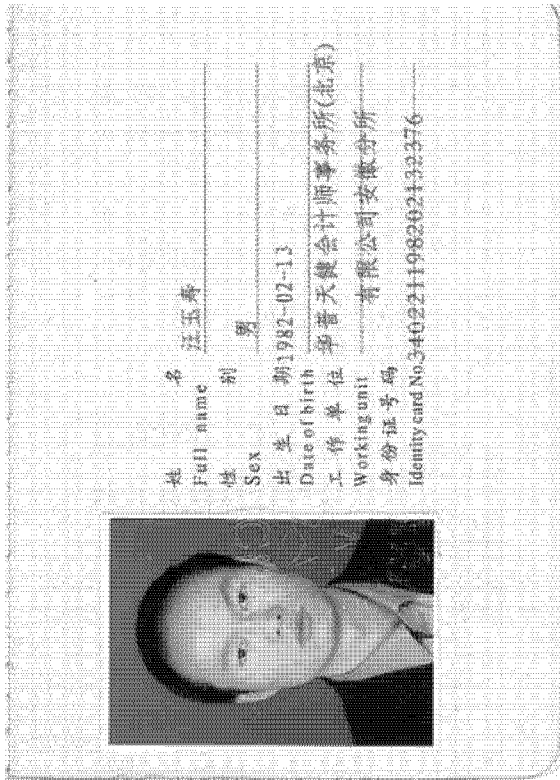 姓 名
Full name 汪玉寿
性 别
Sex 男
出 生 日 期 1982-02-13
Date of birth
工 作 单 位 华普天健会计师事务所(北京)
Working unit 有限公司安徽分所
身 份 证 号 码
Identity card No. 340221198202132376